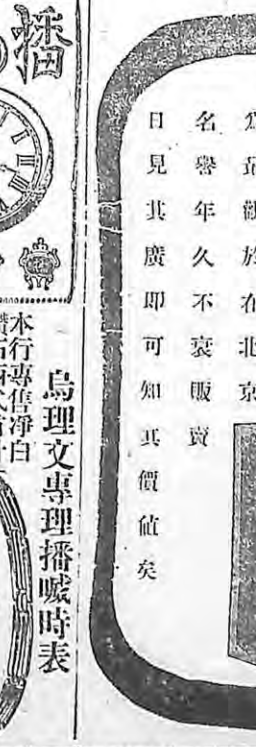 爲品觀於在北京
名譽年久不衰販賣
日見其廣即可知其價值矣
播
烏理文專理播喊時表
本行專售淨白
鑽石